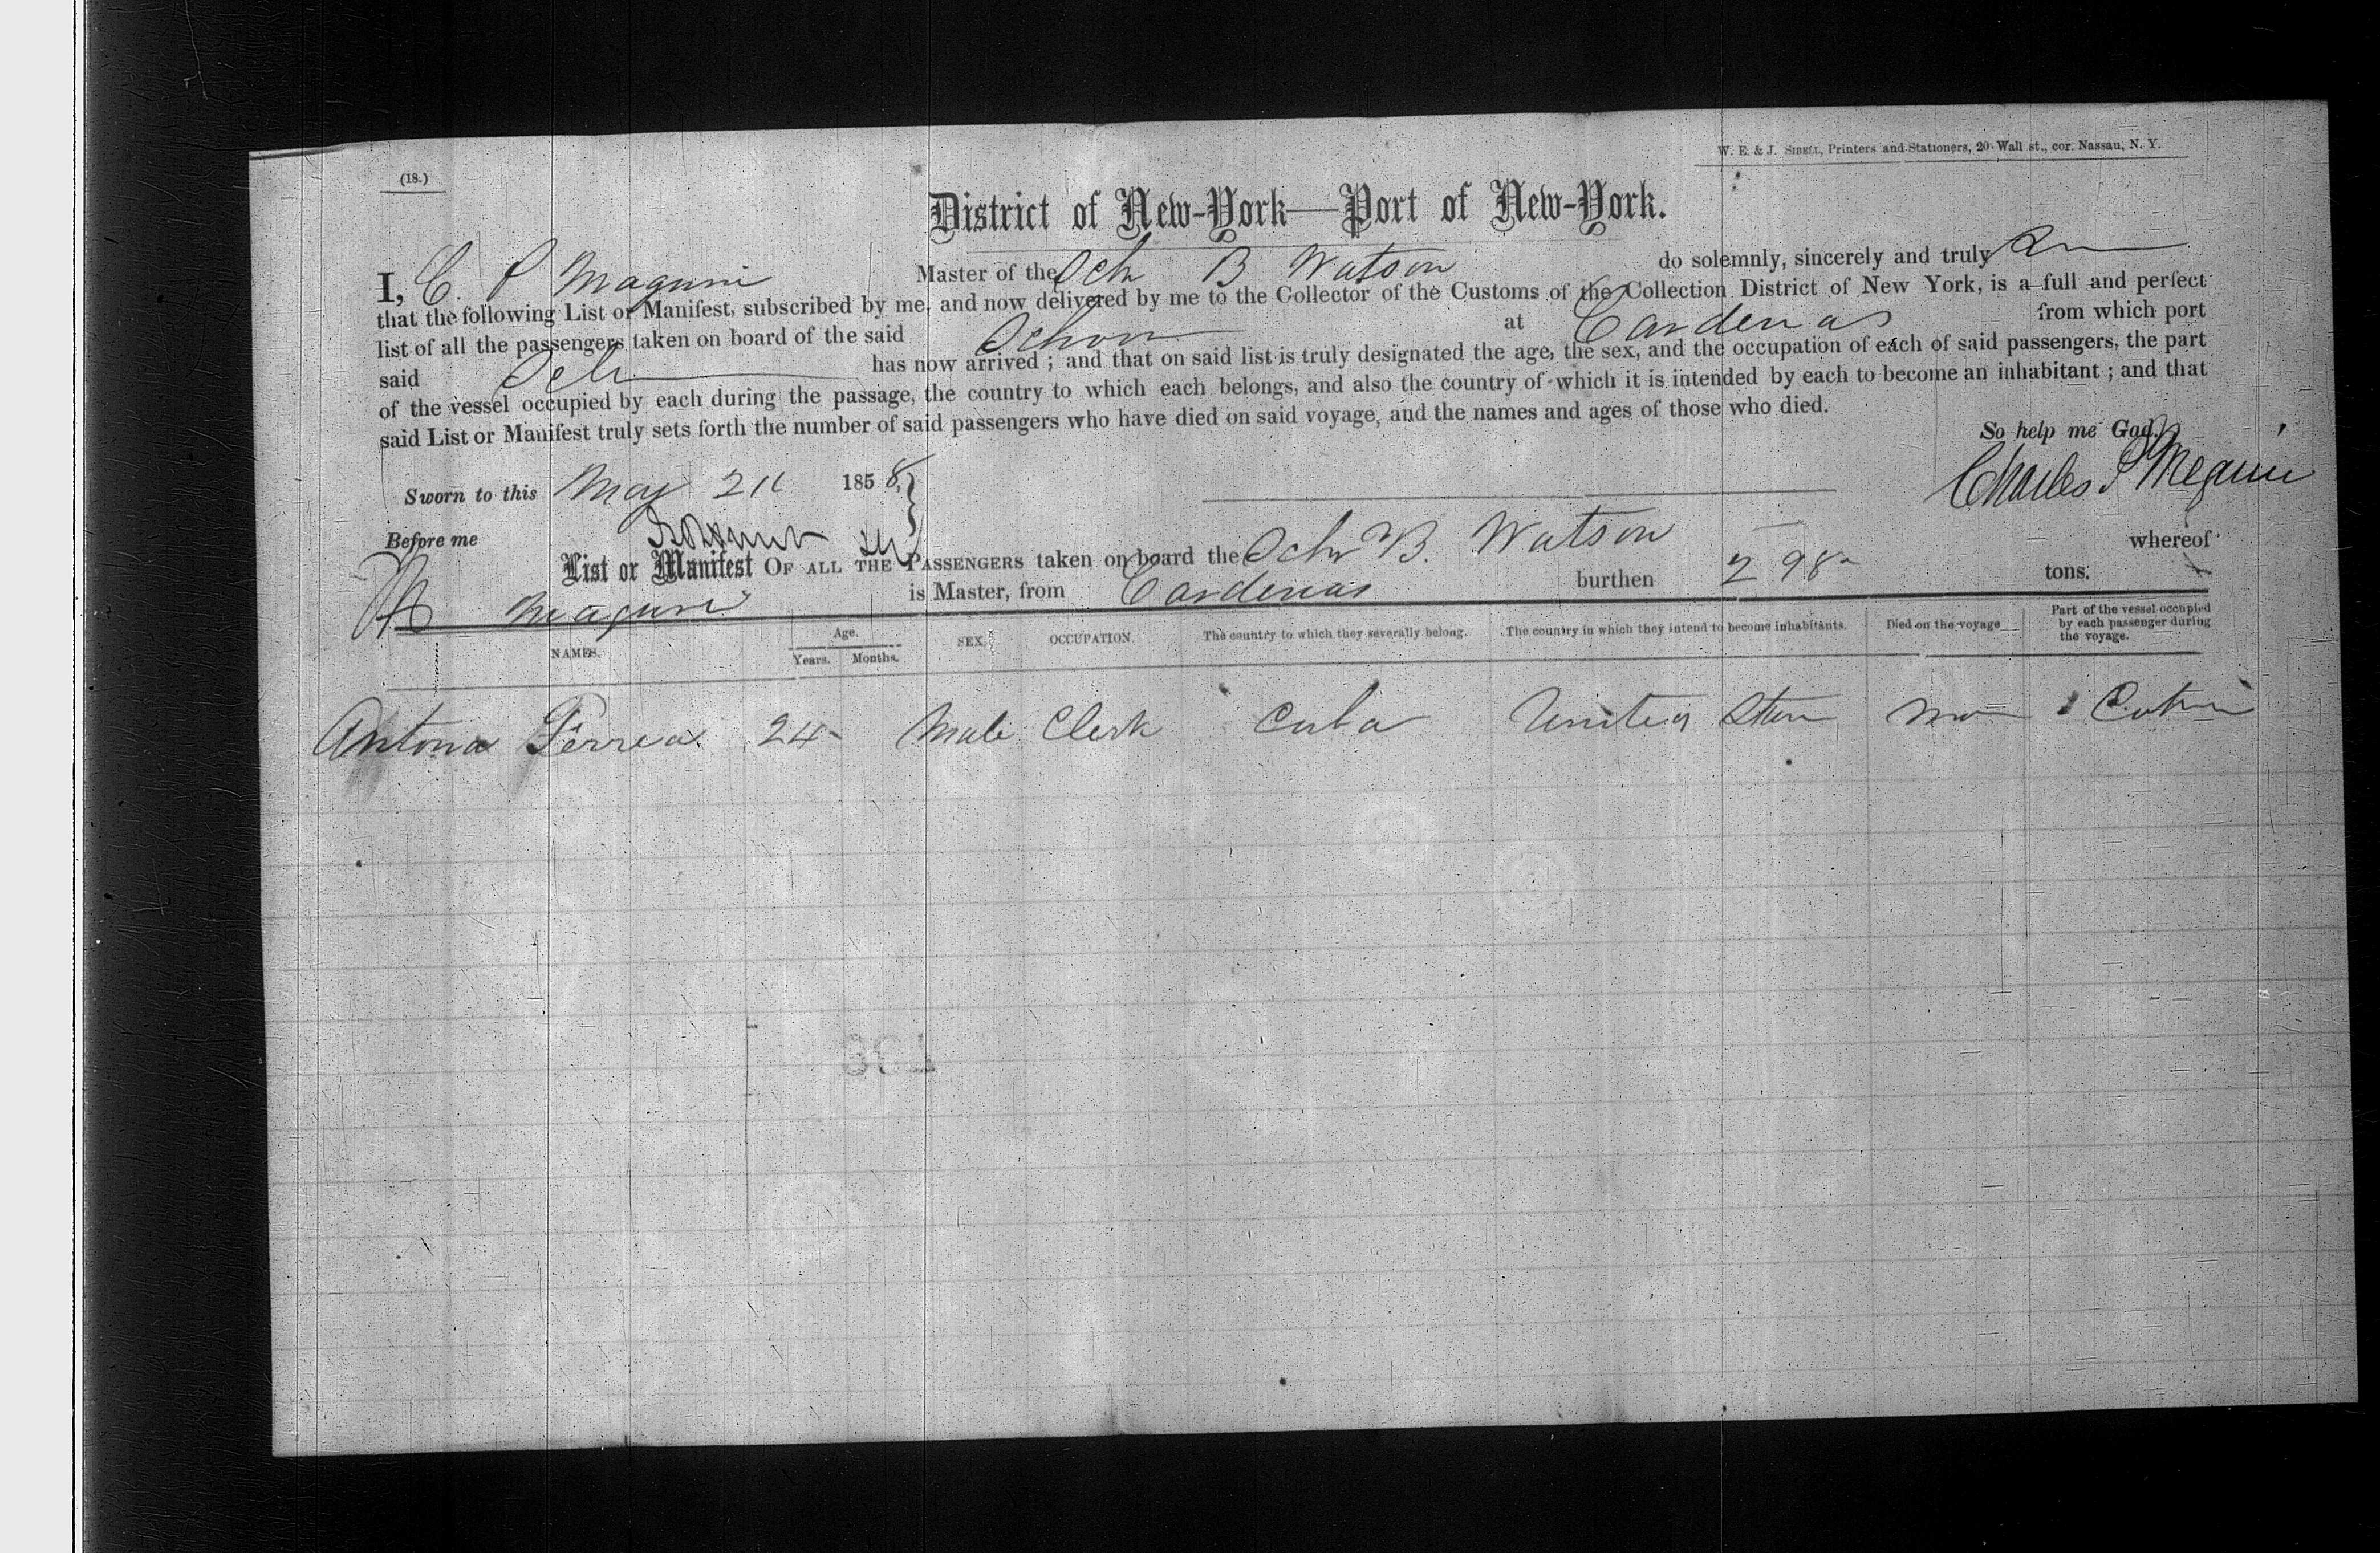 (18.)
W. E. & J. SIBELL, Printers and Stationers, 20 Wall st., cor. Nassau, N. Y.
District of New-York—Port of New-York.
I, C. P Maguire Master of the Sch B Watson do solemnly, sincerely and truly
that the following List or Manifest, subscribed by me, and now delivered by me to the Collector of the Customs of the Collection District of New York, is a full and perfect
list of all the passengers taken on board of the said Schon at Cardenas from which port
said Sch has now arrived ; and that on said list is truly designated the age, the sex, and the occupation of each of said passengers, the part
of the vessel occupied by each during the passage, the country to which each belongs, and also the country of which it is intended by each to become an inhabitant ; and that
said List or Manifest truly sets forth the number of said passengers who have died on said voyage, and the names and ages of those who died.
So help me God.
Sworn to this May 1858 Charles P
Before me
List or Manifest OF ALL THE PASSENGERS taken on board the Schr B. Watson whereof
Maguire is Master, from Cardenas burthen 298 tons.
NAMES. Age. Years. Months. SEX. OCCUPATION. The country to which they severally belong. The country in which they intend to become inhabitants. Died on the voyage Part of the vessel occupied by each passenger during the voyage.
Antona Ferrea 24 Male Clerk Cuba United